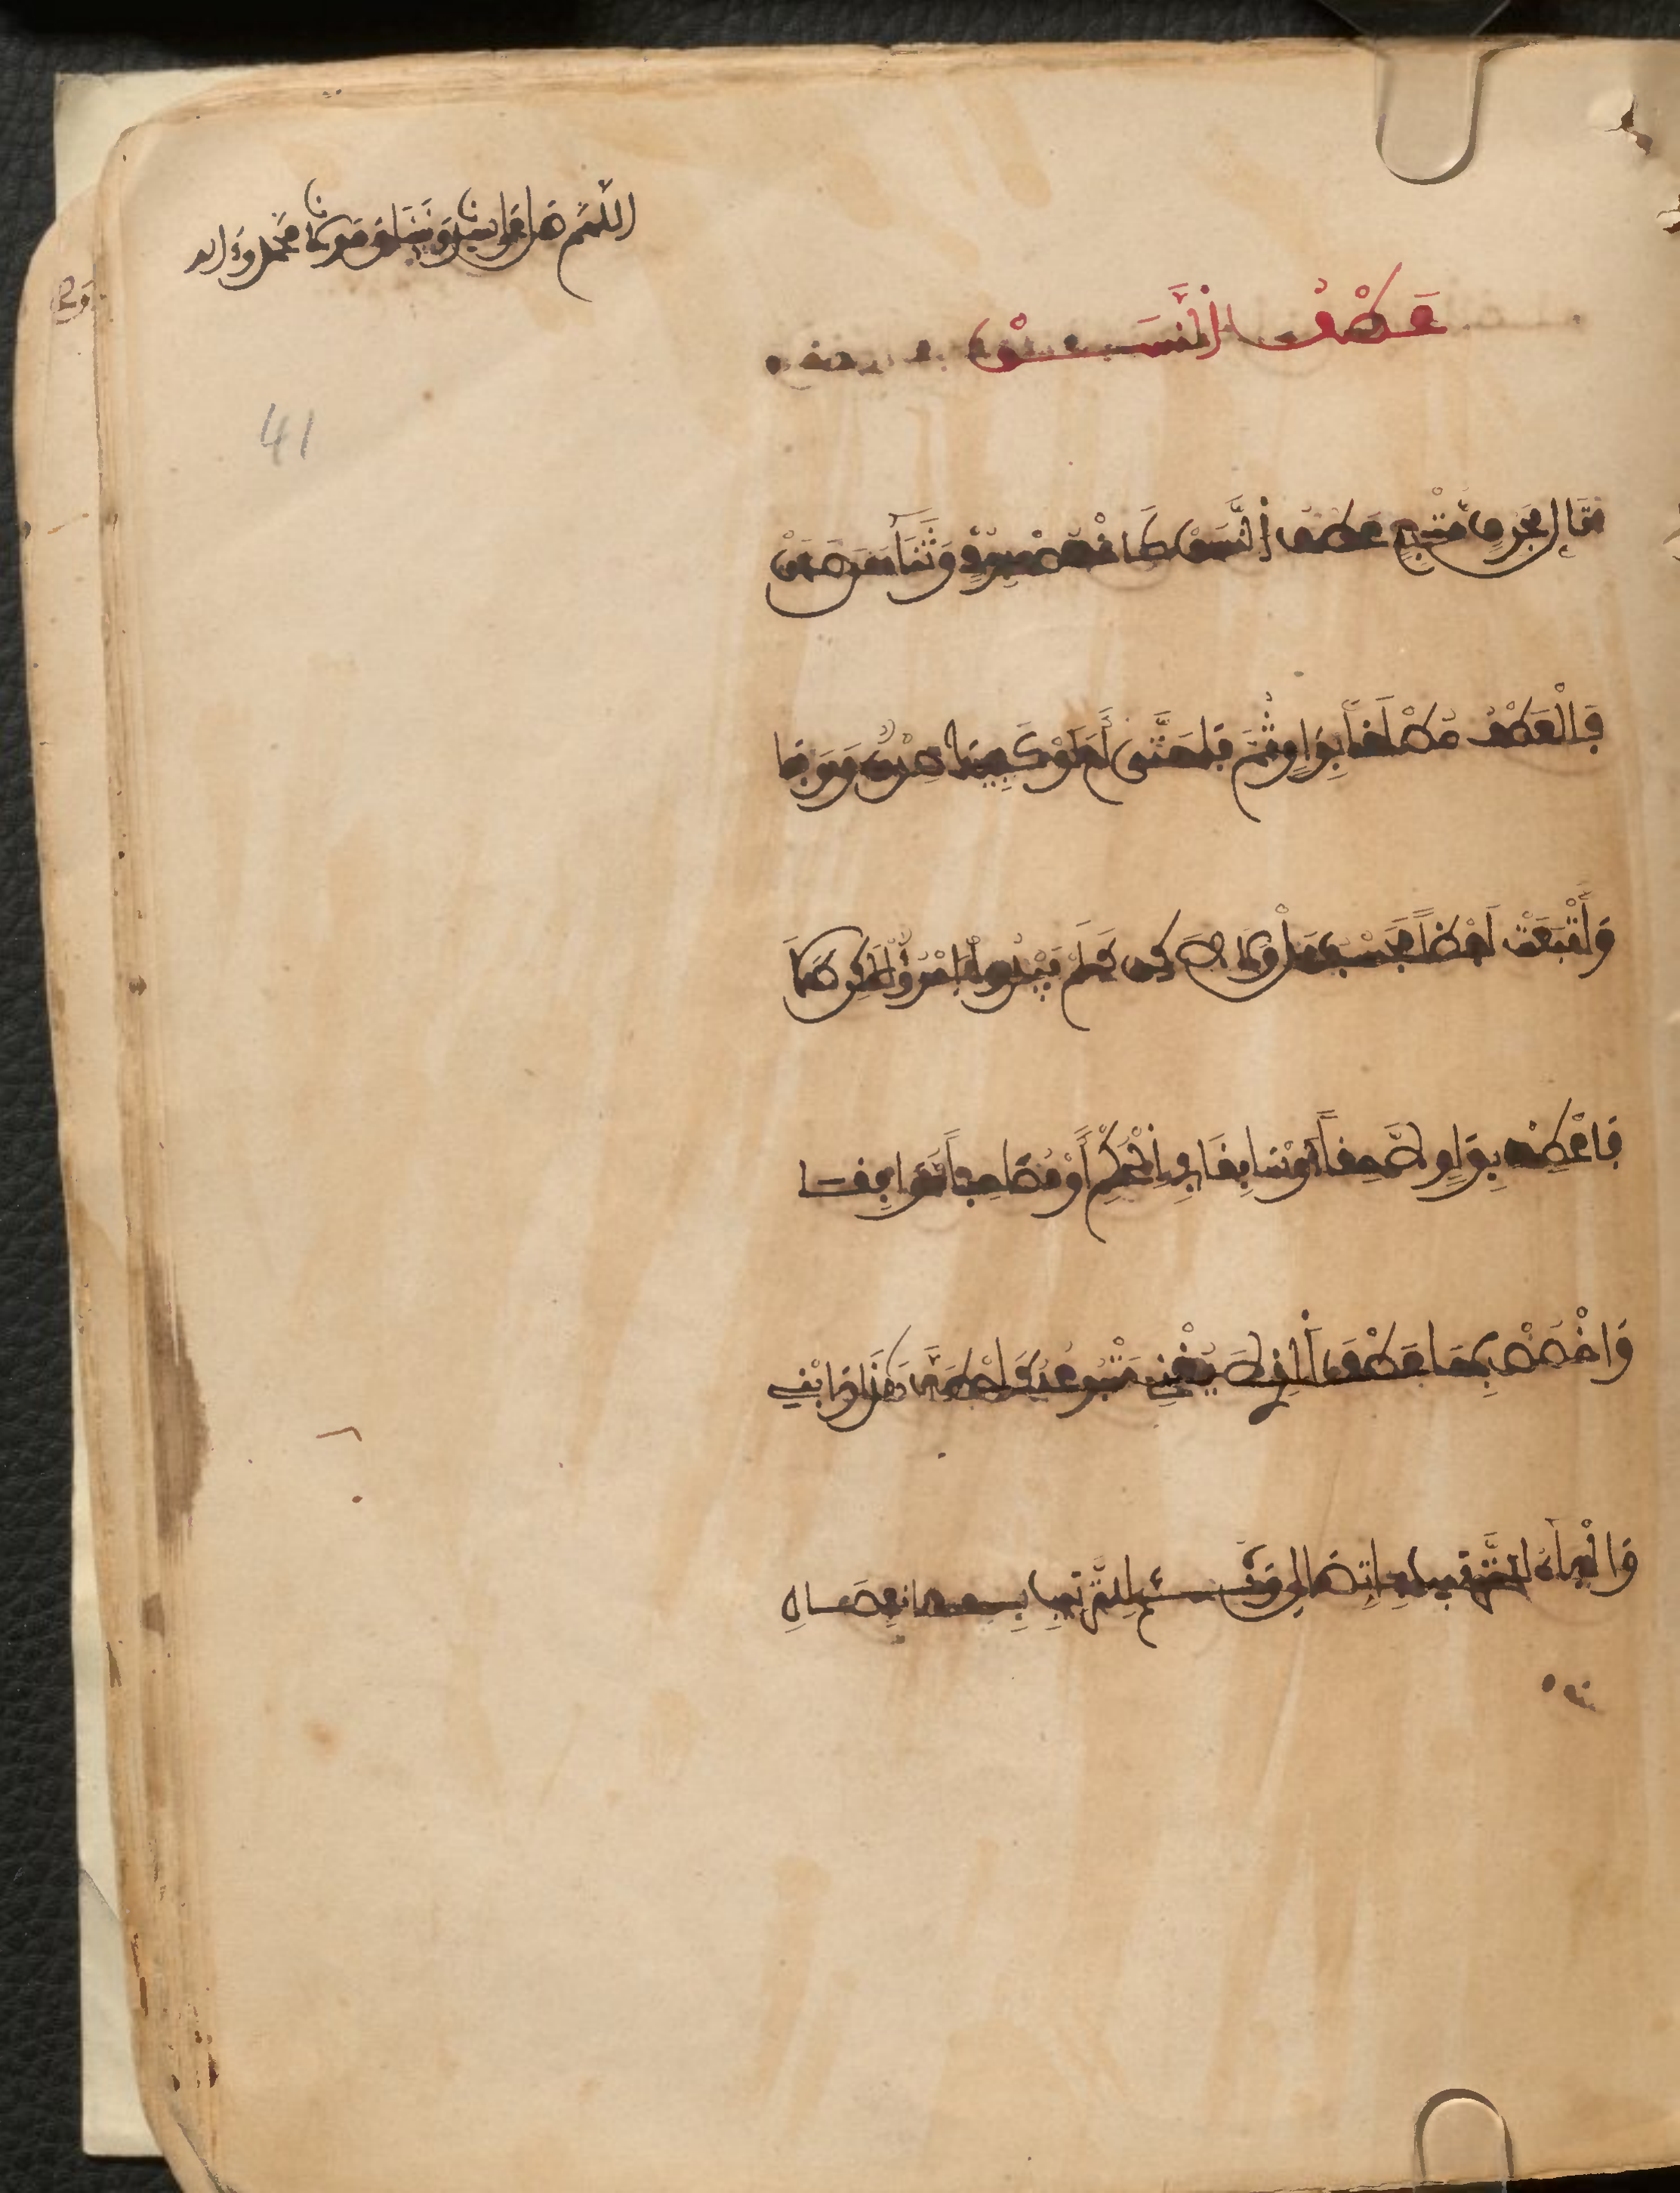 اللهم صل على سيدنا ونبينا ومولانا محمد وءاله
عَطْفُ النَّسَقْ
41
تَالٍ بِحَرْفٍ مُتْبِعٍ عَطْفُ النَّسَقْ كَاخْصُصْ بِوُدٍّ وَثَنَاءٍ مَنْ صَدَقْ
فَالْعَطْفُ مُطْلَقاً بِوَاوٍ ثُمَّ فَا حَتَّى أَمَ اوْ كَفِيكَ صِدْقٌ وَوَفَا
وَأَتْبَعَتْ لَفْظاً فَحَسْبُ بَلْ وَلَا لَكِنْ كَلَمْ يَبْدُ امْرُؤٌ لَكِنْ طَلَا
فَاعْطِفْ بِوَاوٍ لَاحِقاً أَوْ سَابِقَا فِي الْحُكْمِ أَوْ مُصَاحِباً مُوَافِقَا
وَاخْصُصْ بِهَا عَطْفَ الَّذِي لَا يُغْنِي مَتْبُوعُهُ كَاصْطَفَّ هَذَا وَابْنِي
وَالْفَاءُ لِلتَّرْتِيبِ بِاتِّصَالِ وَثُمَّ لِلتَّرْتِيبِ بِانْفِصَالِ